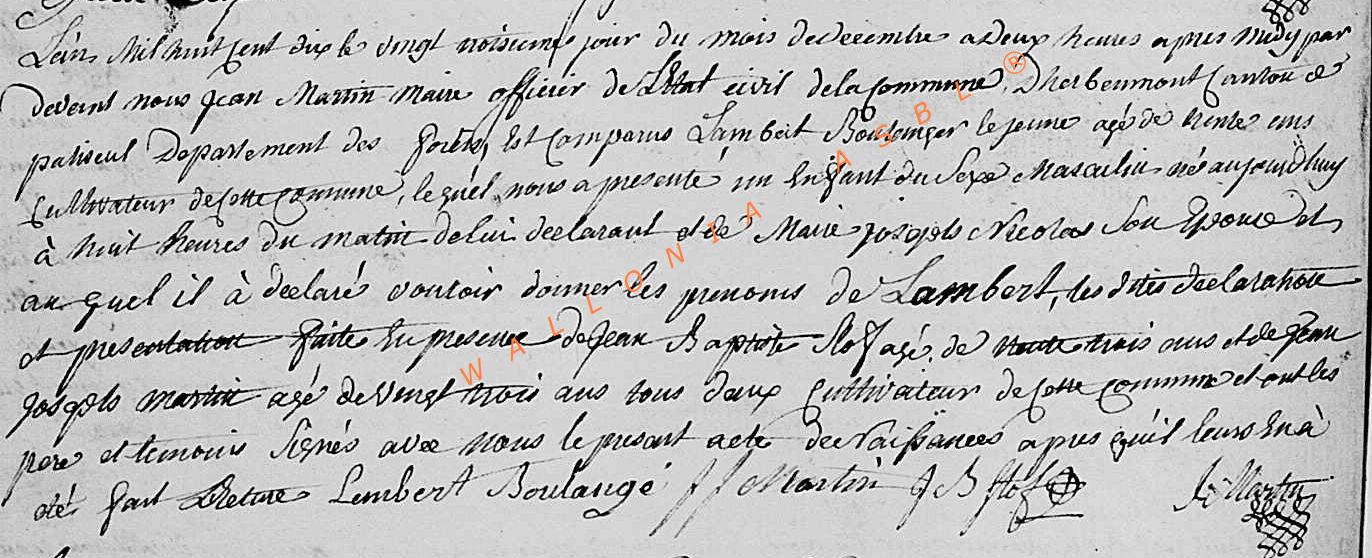 L'an Mil huit Cent dix le vingt troisieme jour du mois de decembre a deux heures apres midy par
devant nous Jean Martin Maire officier de L'Etat civil de la Commune D'herbeumont Canton de
paliseul Departement des forets, Est Comparus Lambert Boulanger le jeune agé de trente ans
Cultivateur de Cette Commune, lequel nous a presenté un Enfant du Sexe Masculin né aujourd'huy
à huit heures du matin de lui declarant et de Marie josephs Nicolas Son Epouse et
au quel il à declaré vouloir donner les prenoms de Lambert, les dites declaration
et presentation faite En presence de Jean Baptiste agé de trente trois ans et de Jean
Josephs martin agé de vingt trois ans tous deux Cultivateur de Cette Commune et ont les
pere et temoins Signés avec nous le present acte de Naissances apres qu'il leurs En à
été fait Lecture Lambert Boulangé JJ Martin J B J Martin
WALLONIA ASBL ®